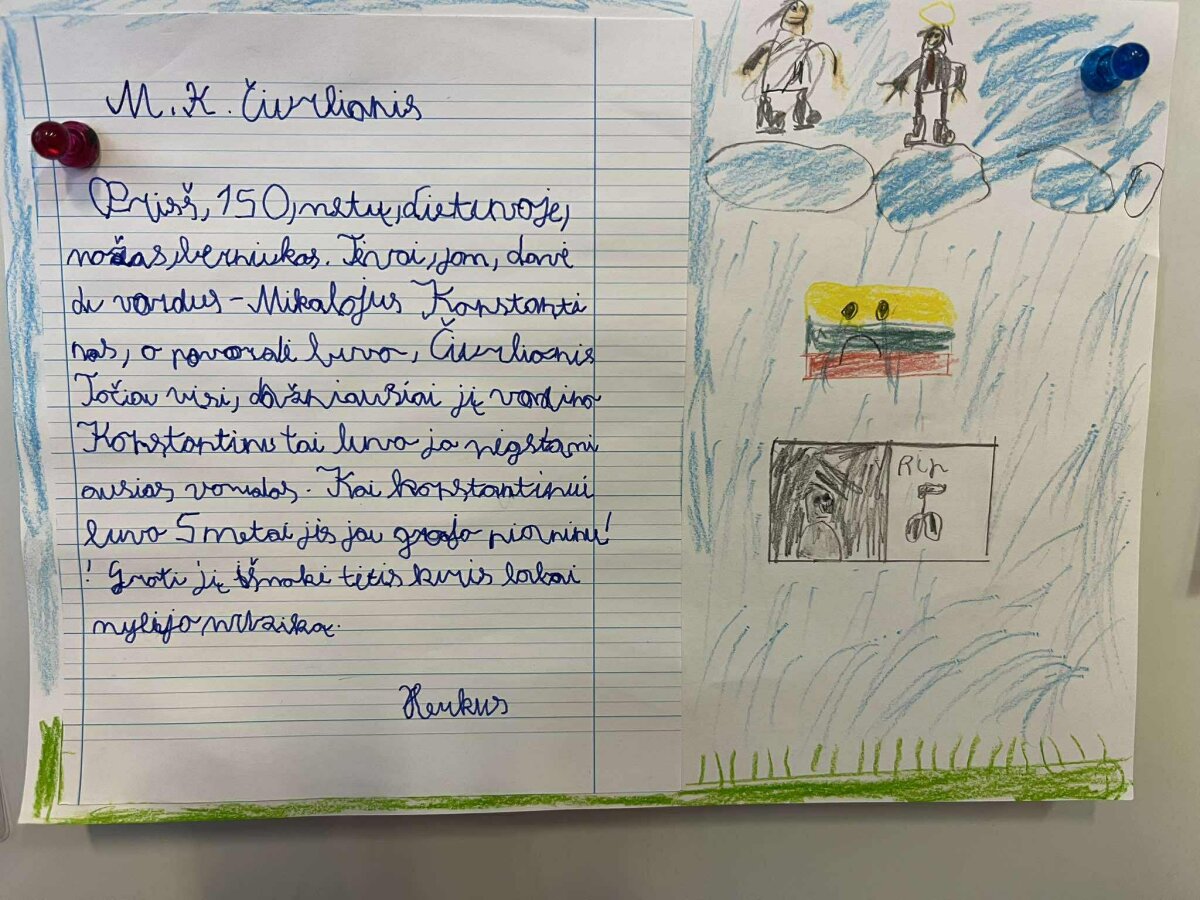 M. K. Čiurlionis
Prieš, 150, metų, Lietuvoje,
berniukas. Tėvai, jam, davė
du vardus - Mikalojus Konstanti
nas, o pavardė buvo, Čiurlionis
Tačiau visi, dažniausiai jį vadino
Konstantinu tai buvo jo mėgstami
ausias vardas. Kai konstantinui
buvo 5 metai jis jau grojo pianinu!
! Groti jį išmokė tėtis kuris labai
mylėjo muziką.
Herkus
RIP